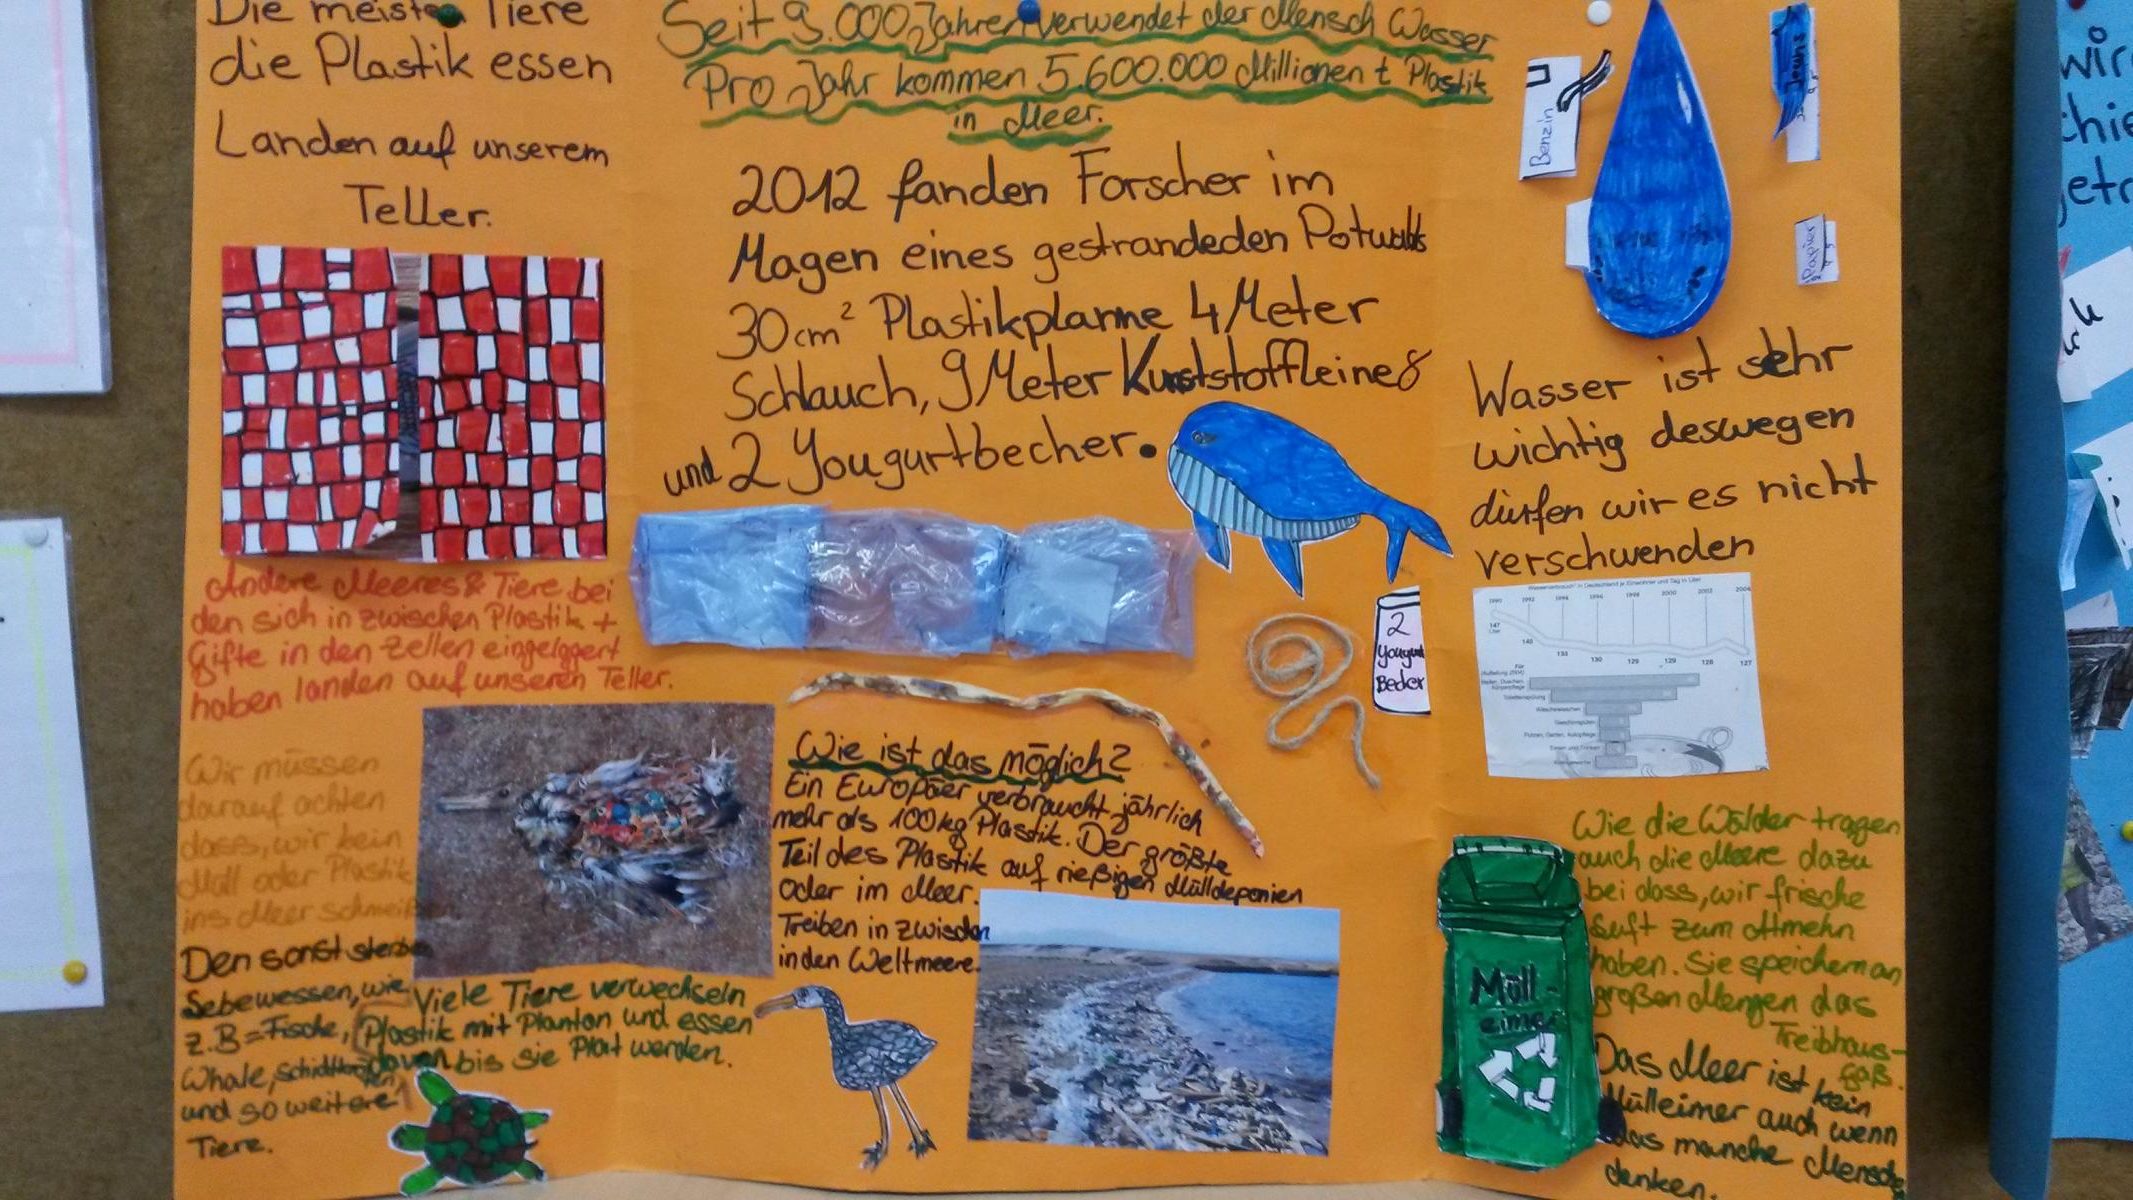 Die meisten Tiere
die Plastik essen
Landen auf unserem
Teller.
Andere Meeres & Tiere bei
den sich in zwischen Plastik +
Gifte in den Zellen eingelagert
haben landen auf unseren Teller.
Wir müssen
darauf achten
dass, wir kein
Müll oder Plastik
ins Meer schmeißen
Den sonst sterben
Sebewessen, wie
z.B = Fische,
Whale,
und so weitere
Tiere.
Viele Tiere verwechseln
Plastik mit Planton und essen
davon bis sie Plat werden.
Seit 9.000 Jahren verwendet der Mensch Wasser
Pro Jahr kommen 5.600.000 Millionen t Plastik
in Meer.
2012 fanden Forscher im
Magen eines gestrandeden Potwals
30cm² Plastikplanne 4 Meter
Schlauch, 9 Meter Kunststoffleine &
und 2 Yougurtbecher.
2
Yougurt
Becher
Wie ist das möglich?
Ein Europäer verbraucht jährlich
mehr als 100kg Plastik. Der größte
Teil des Plastik auf rießigen Mülldeponien
oder im Meer.
Treiben in zwischen
in den Weltmeere.
Benzin
Jeans
Papier
Wasser ist sehr
wichtig deswegen
dürfen wir es nicht
verschwenden
Wasserverbrauch in Deutschland je Einwohner und Tag in Liter
1990 1992 1994 1996 1998 2000 2002 2004
147
Liter
140
130 129 129 128 127
Wie die Wälder tragen
auch die Meere dazu
bei dass, wir frische
Luft zum Atmehn
haben. Sie speichern an
großen Mengen das
Treibhaus-
gas.
Müll-
eimer
Das Meer ist kein
Mülleimer auch wenn
das manche Mensche
denken.
wir